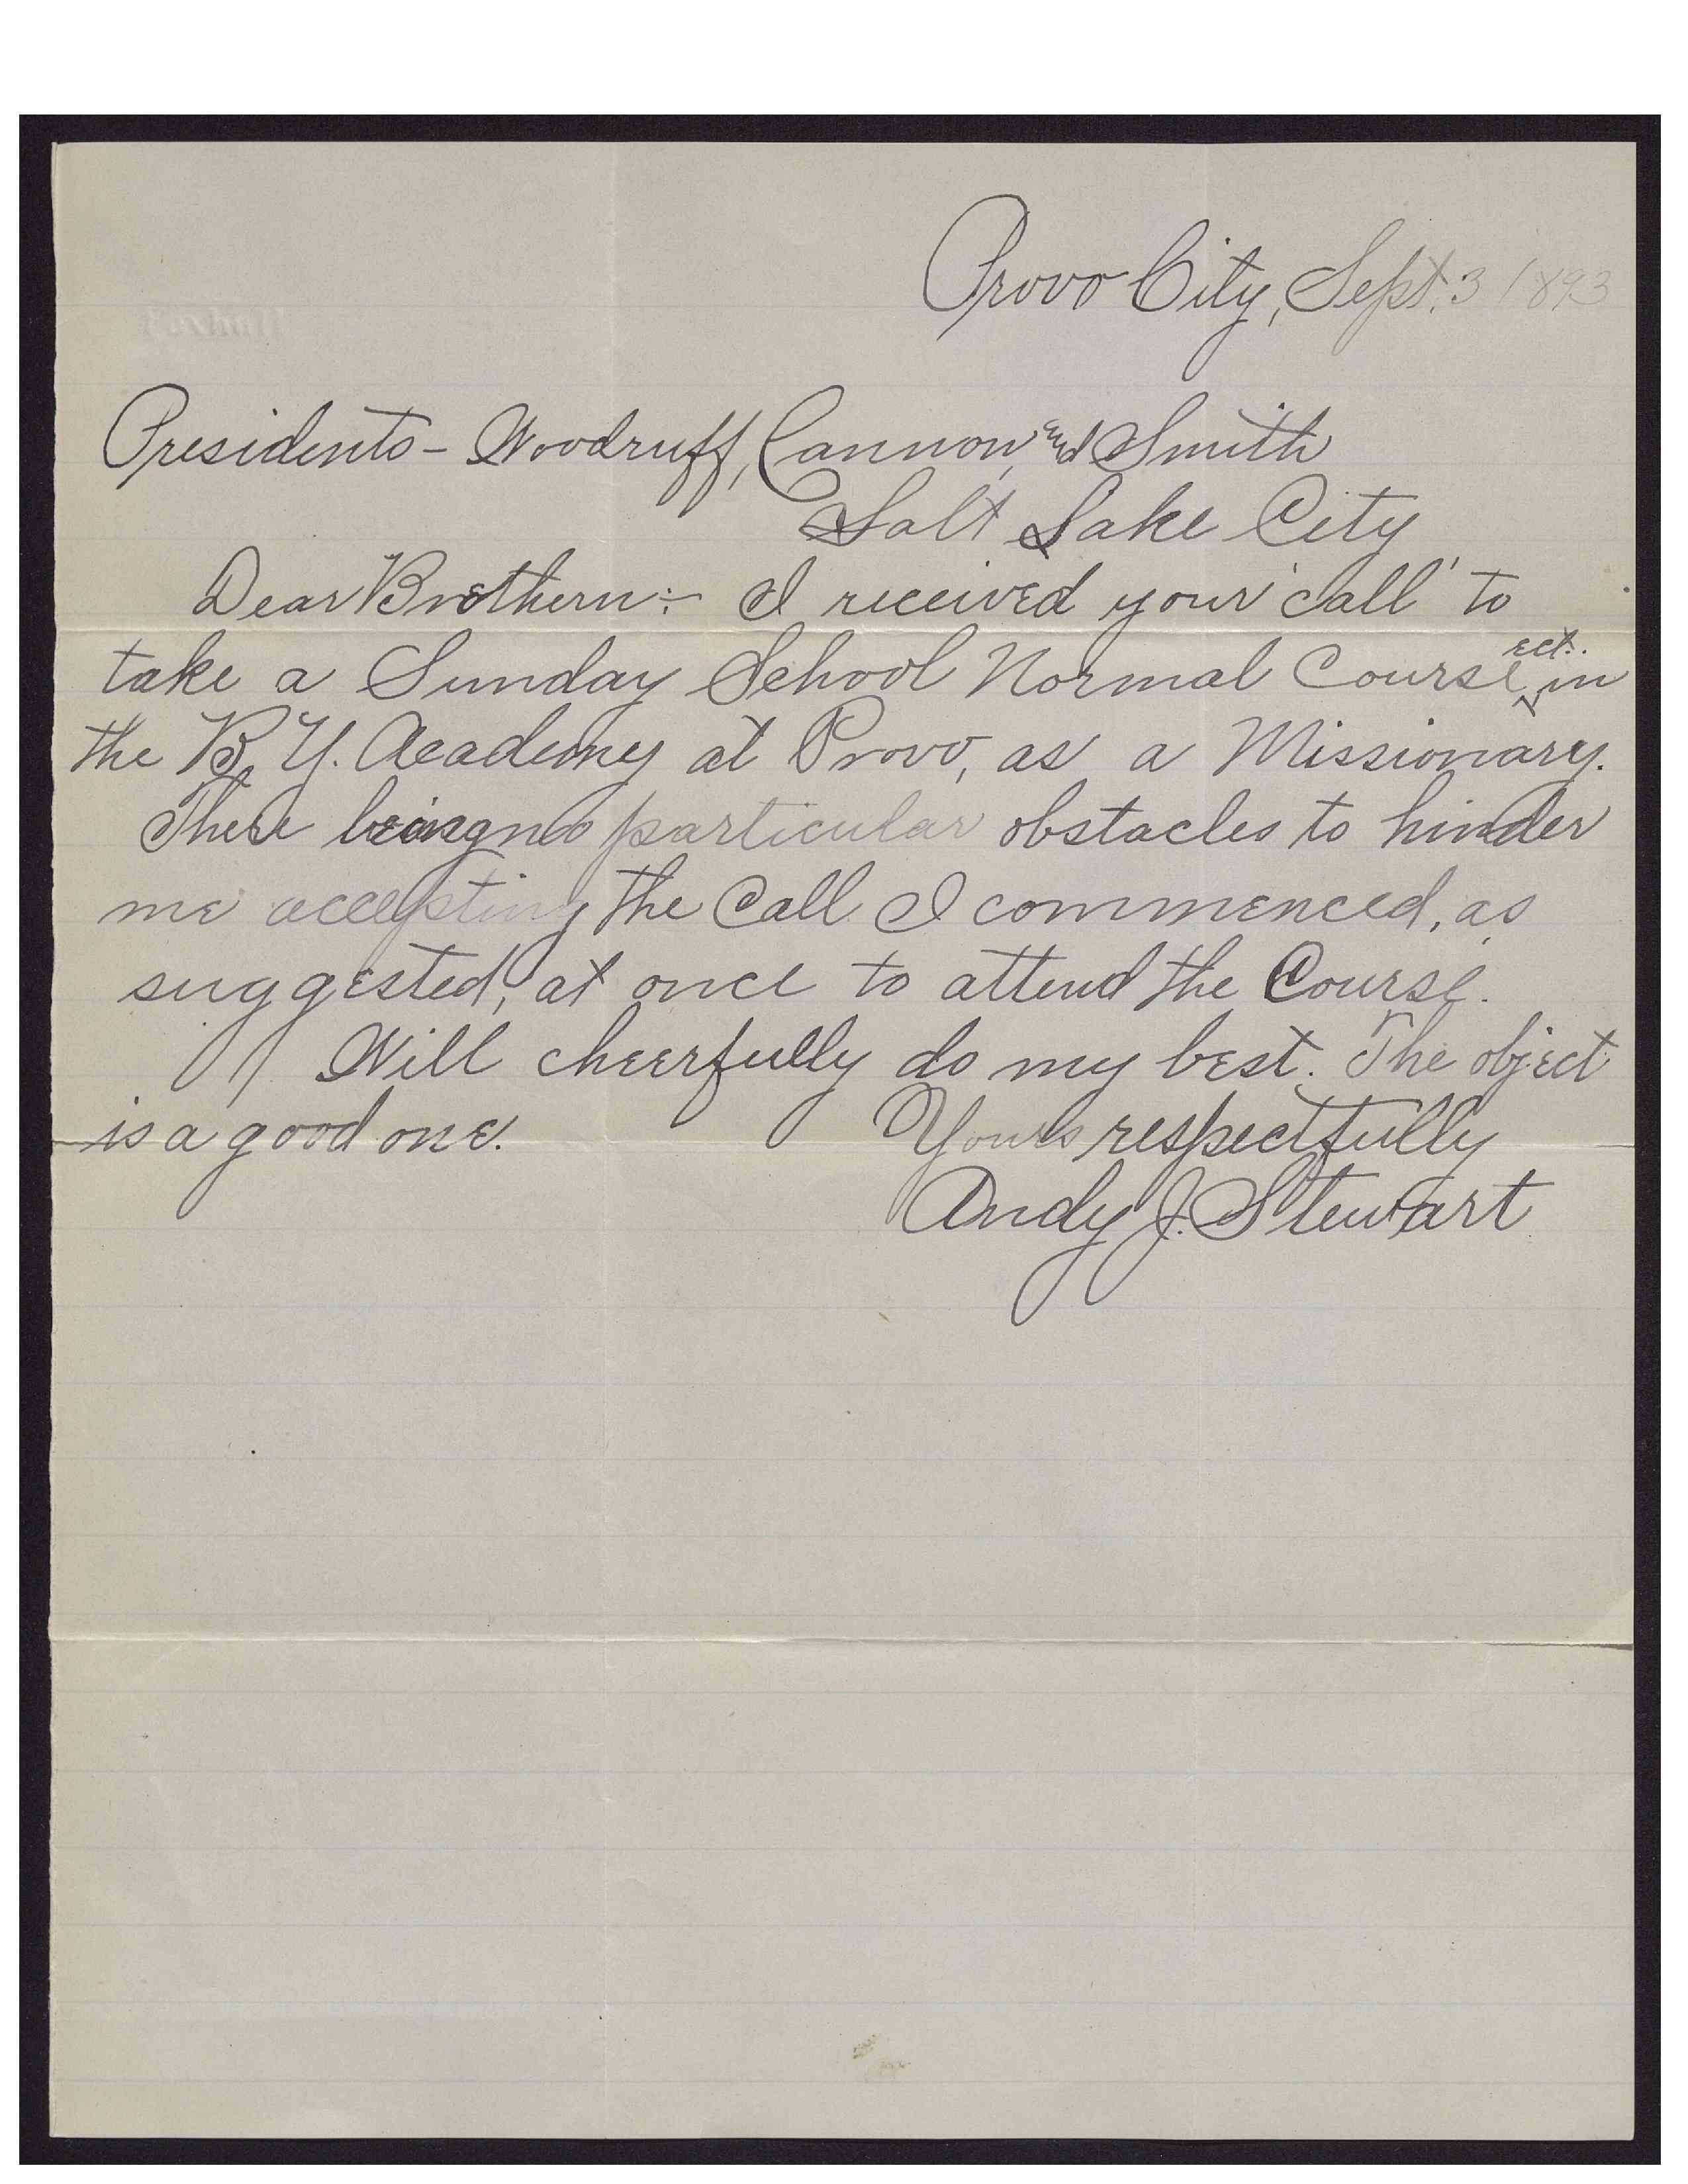 Provo City, Sept. 3 1893
Presidents - Woodruff, Cannon, and Smith
Salt Lake City
Dear Brethern:- I received your 'call' to
take a Sunday School Normal Course, ect. in
the B. Y. Academy at Provo, as a Missionary.
There being no particular obstacles to hinder
me accepting the Call I commenced, as
suggested, at once to attend the Course.
Will cheerfully do my best. The object
is a good one. Yours respectfully
Andy J. Stewart